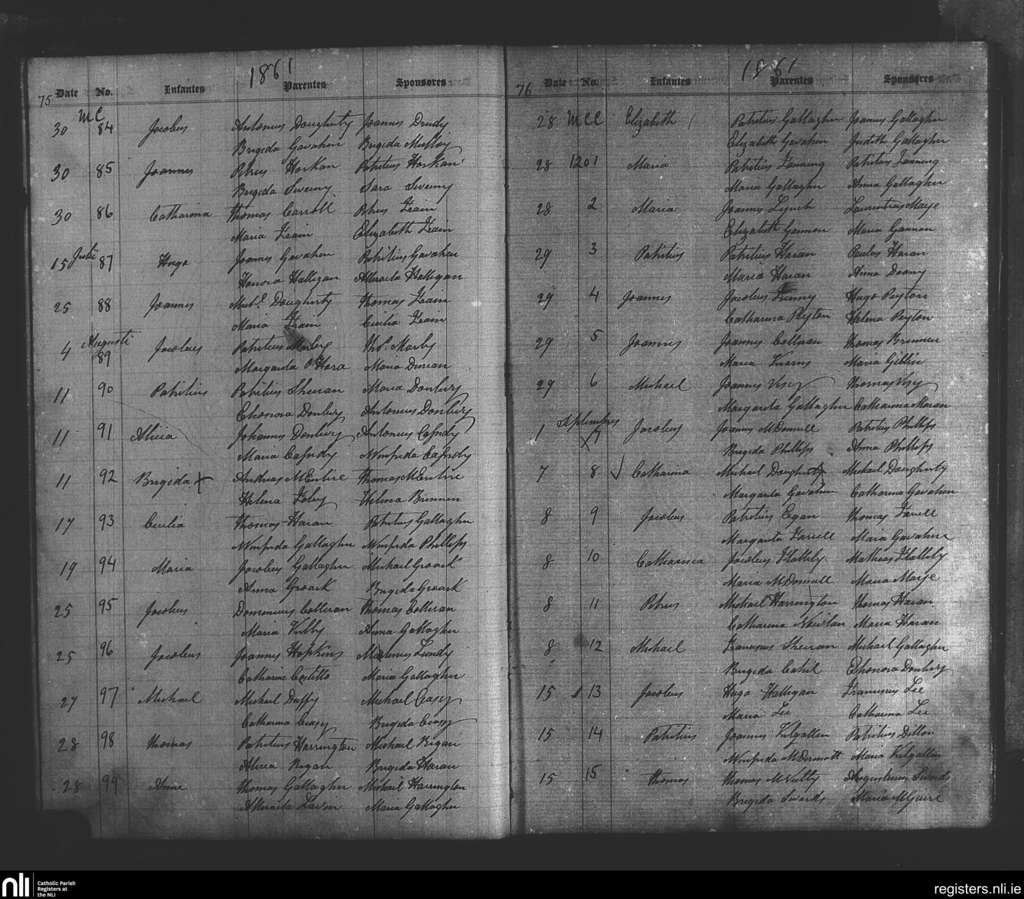 1861
75 Date No. Infantes Parentes Sponsores
MC
30 84 Jacobus Antonius Dougherty Joannes Drudy
Brigida Gavahan Brigida Mulloy
30 85 Joannes Petrus Horkan Patritius Horkan
Brigida Sweeny Sara Sweeny
30 86 Catharina Thomas Carroll Petrus
Maria Elizabeth
15 Julii 87 Hugo Joannes Gavahan Patritius Gavahan
Honora Halligan Halligan
25 88 Joannes Michl. Dougherty Thomas
Maria Cecilia
Augusti
4 89 Jacobus Patritius Thos.
Margarita O'Hara Maria Duncan
11 90 Patritius Patritius Sheran Maria
Antonius
11 91 Alicia Johannes Antonius
Maria Winifrida
11 92 Brigida Andreas McEntire Thomas McEntire
Helena Foley Helena Brennen
17 93 Cecilia Thomas Haran Patritius Gallagher
Winifrida Gallagher Winifrida Phillips
19 94 Maria Jacobus Gallagher Michael Groark
Anna Groark Brigida Groark
25 95 Jacobus Dominicus Colleran Thomas Colleran
Maria Anna Gallagher
25 96 Jacobus Joannes Hopkins Lundy
Catharina Costello Maria Gallagher
27 97 Michael Michael Duffy Michael Casey
Catharina Brigida
28 98 Thomas Patritius Harrington Michael Regan
Alicia Regan Brigida Haran
28 99 Anna Thomas Gallagher Michael Harrington
Maria Gallagher
1861
76 Date No. Infantes Parentes Sponsores
28 MCC Elizabeth Patritius Gallagher Joannes Gallagher
Elizabeth Gavahan Judith Gallagher
28 1201 Maria Patritius Fanning Patritius Fanning
Maria Gallagher Anna Gallagher
28 2 Maria Joannes Lynch Laurentius
Elizabeth Gannon Maria Gannon
29 3 Patritius Patritius Haran Paulus Haran
Maria Haran Anna
29 4 Joannes Jacobus Hugo Peyton
Catharina Peyton Helena Peyton
29 5 Joannes Joannes Thomas Brennen
Maria Kearns Maria
29 6 Michael Joannes Thomas
Margarita Gallagher Catharina Moran
Septembres
1 7 Jacobus Joannes McDonnell Patritius Phillips
Brigida Phillips Anna Phillips
7 8 Catharina Michael Dougherty Michael Dougherty
Margarita Gavahan Catharina Gavahan
8 9 Jacobus Patritius Egan Thomas Farrell
Margarita Farrell Maria Gavahan
8 10 Catharina Jacobus Flattely Mathias Flattely
Maria McDonnell Maria
8 11 Petrus Michael Harrington Thomas Haran
Catharina Maria Haran
8 12 Michael Sheeran Michael Gallagher
Brigida Cahil
15 13 Jacobus Hugo Halligan Franciscus Lee
Maria Lee Catharina Lee
15 14 Patritius Joannes Kilgallen Patritius Dillon
Winifrida McDermott Maria Kilgallen
15 15 Thomas Thomas McNulty Augustinus Swords
Brigida Swords Maria McGuire
nli Catholic Parish
Registers at
the NLI
registers.nli.ie